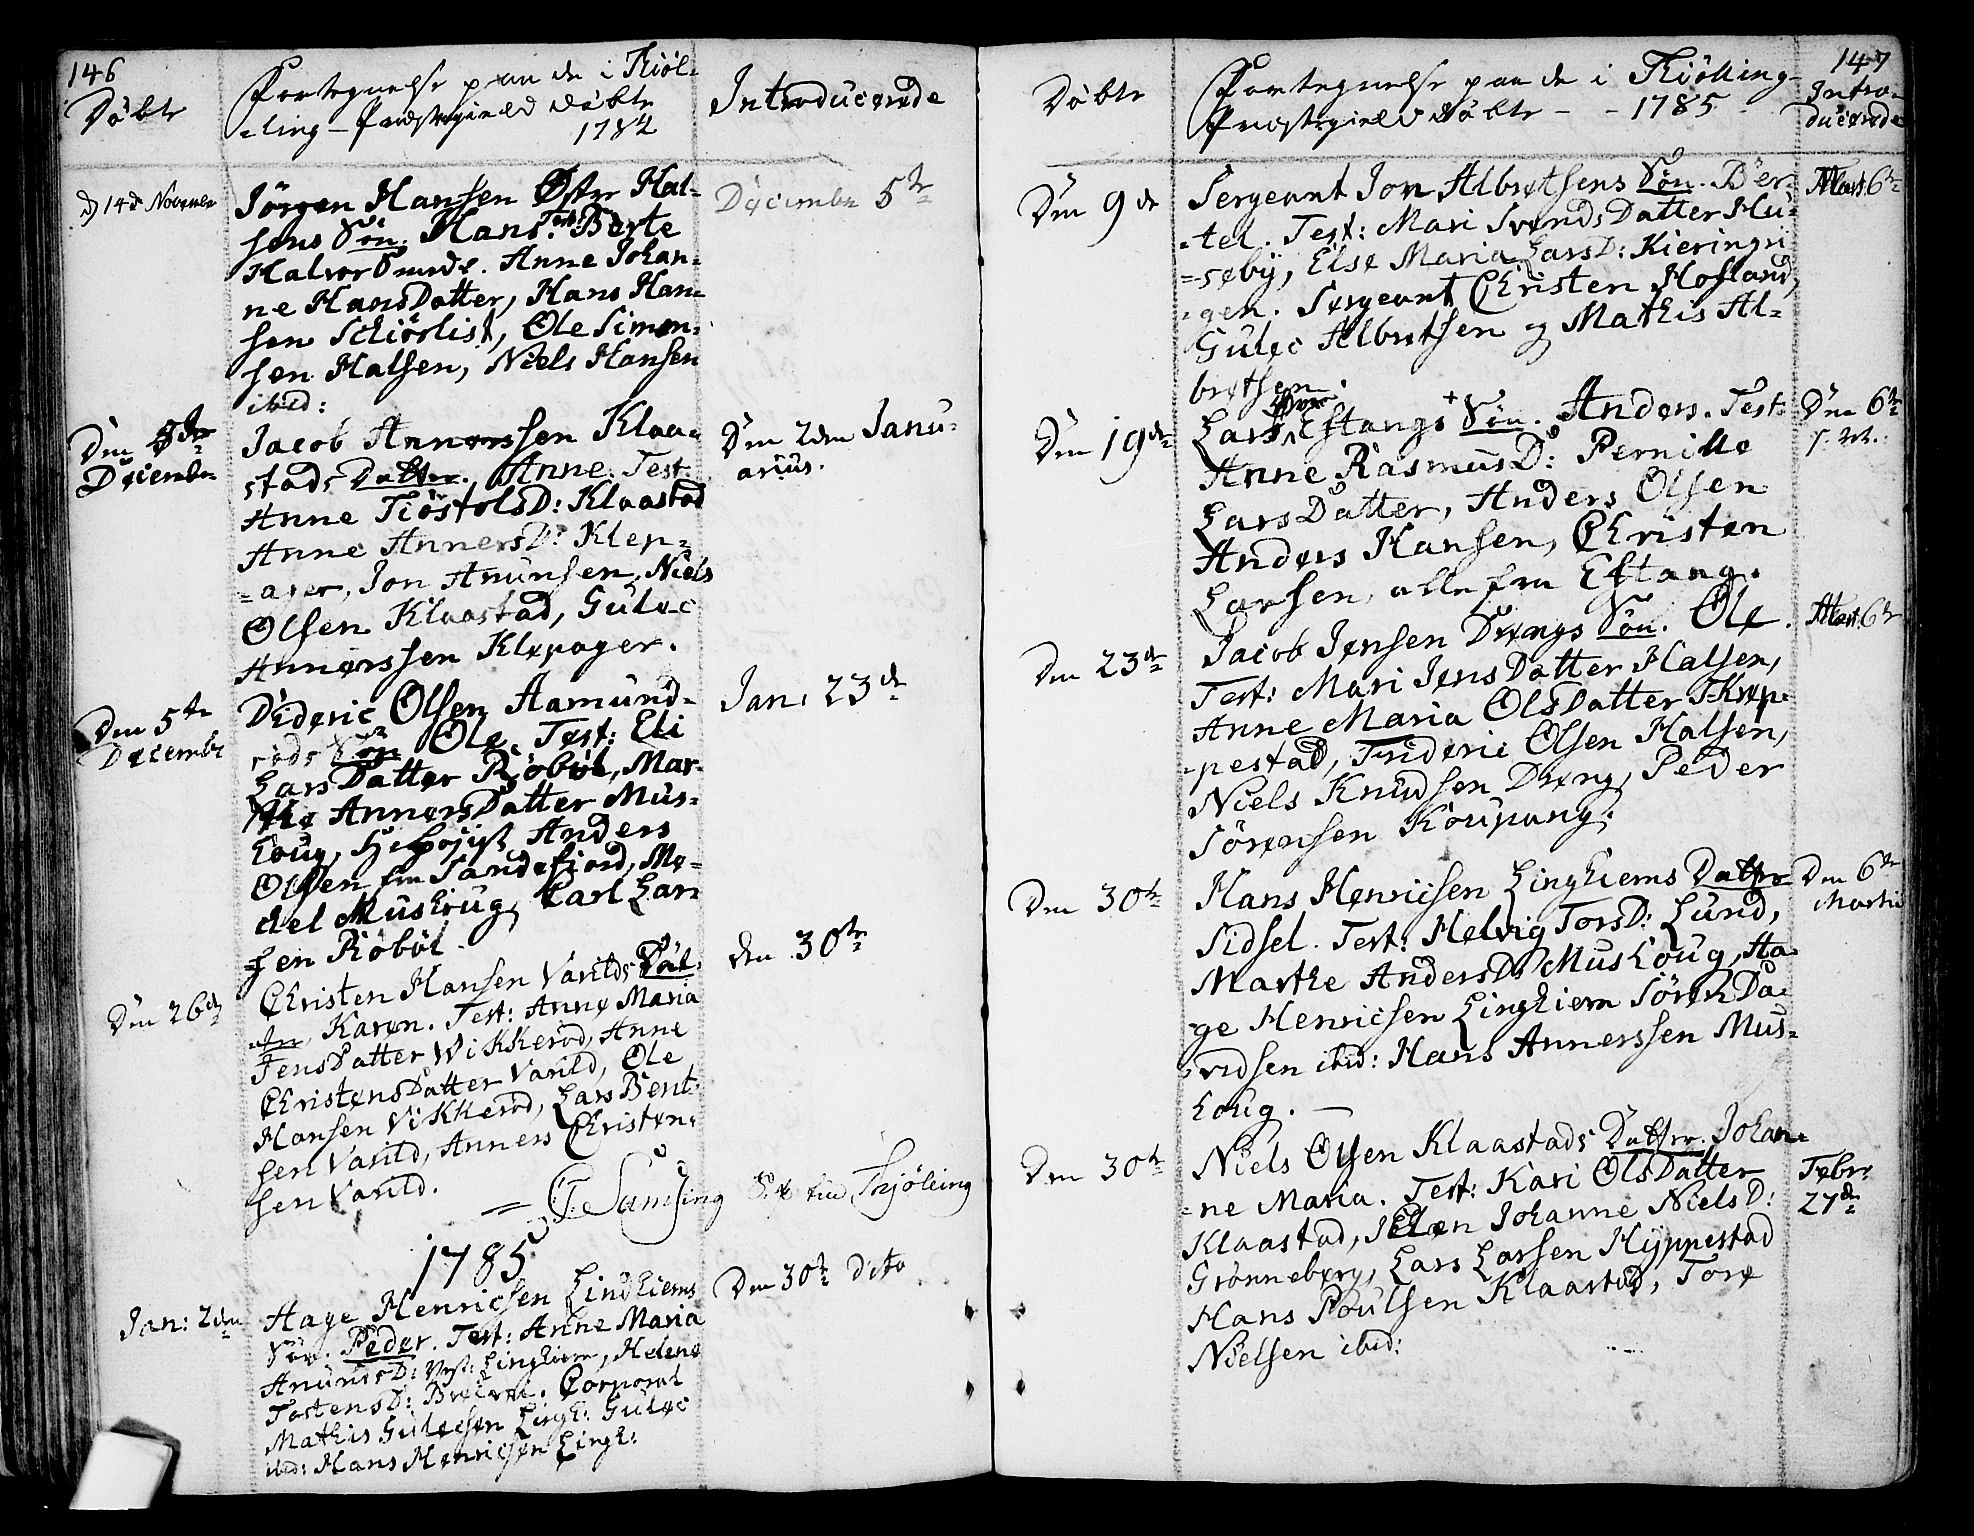 146
Døbte
Fortegnelse paa de i Thiøl-
-ling-Præstegield døbte
1784
Introducerede
d. 14de November
Jörgen Hansen Østr Hal-
sens Søn. Hans. Test: Berte
Halvor Smeds. Anne Johan-
ne HansDatter, Hans Han-
sen Schiörlist, Ole Simon-
sen Halsen, Niels Hansen
ibid:
Decembr 5te
Den 5te
December
Jacob Annerssen Klaa-
stads Datter. Anne. Test:
Anne TiöstolsD: Klaastad
Anne AnnersD: Klep-
-ager, Jon Anunsen, Niels
Olsen Klaastad, Guloc
Annerssen Klepager.
Den 2den Janu-
arius.
Den 5te
Decembr
Dideric Olsen Aamund-
röds Søn Ole. Test: Eli
LarsDatter Röböl, Mar-
the AnnersDatter Mus-
houg, Anders
Olsen fra Sandefiord, Mo-
del Mushoug, Carl Lar-
sen Röböl.
Jan: 23de
Den 26de
Christen Hansen Varilds Dåt-
ter Karen. Test: Anne Maria
JensDatter Wikkeröd, Anne
ChristensDatter Varild, Ole
Hansen Vikkeröd, Lars Bent-
sen Varild, Anners Christen-
sen Varild.
den 30te
G. Samsing
Thjöling
1785
Jan: 2den
Hage Henricsen Lindhiems
Søn. Peder. Test: Anne Maria
AnundsD: Vest: Linghiem, Helene
TostensD: Corporal
Mathis Gulocsen Lingh: Guloc
ibid: Hans Henricsen Lingh:
Den 30te Dito
147
Døbte
Fortegnelse paa de i Thiölling-
Præstegield døbte - - 1785 -
Intro-
ducerede
Den 9de
Sergeant Jon Albretsens Søn. Ber-
-tel. Test: Mari SvendsDatter Hu-
-seby, Else Maria LarsD: Kierings-
-gen. Sergeant Christen Hofland,
Guloc Albretsen og Mathis Al-
bretsen.
Mart: 6te
Den 19de
Lars Over Eftangs + Søn. Anders. Test:
Anne RasmusD: Pernille
LarsDatter, Anders Olsen
Anders Hansen, Christen
Larsen, alle fra Eftang.
Den 6te
Den 23de
Jacob Jensen Drengs Søn. Ole.
Test: Mari JensDatter Halsen,
Anne Maria OlsDatter Skrep-
-pestad, Frideric Olsen Halsen,
Niels Knudsen Dreng, Peder
Sörensen Koupang.
Mart: 6te
Den 30te
Hans Henricsen Linghiems Datter
Sidsel. Test: Helvig TorsD: Lund,
Marthe AndersD: Mushoug, Ha-
ge Henricsen Linghiem Sören Da-
-vidsen ibid: Hans Annerssen Mus-
houg. —
Den 6te
Martii
Den 30te
Niels Olsen Klaastads Datter. Johan-
-ne Maria. Test: Kari OlsDatter
Klaastad, Ellen Johanne NielsD:
Grönneberg, Lars Larsen Hyppestad
Hans Poulsen Klaastad, Tore
Nielsen ibid:
Febr:
27de